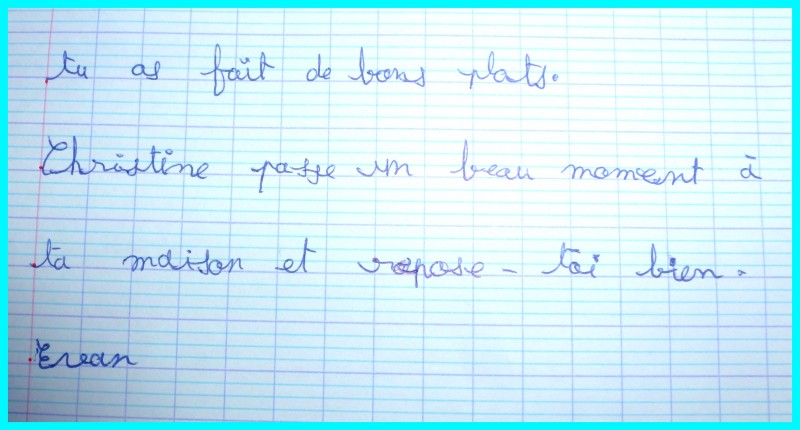 tu as fait de bons plats.
Christine passe un beau moment à
ta maison et repose-toi bien.
Evan